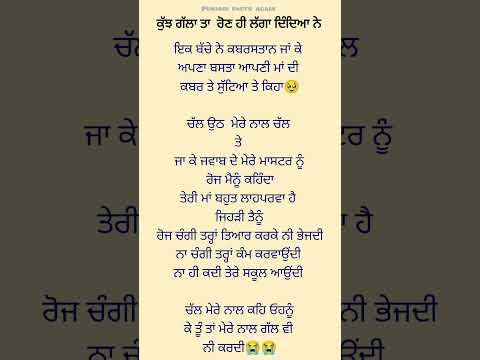 PUNJABI FACTS AGAIN
ਕੁੱਝ ਗੱਲਾ ਤਾ ਰੋਣ ਹੀ ਲੱਗਾ ਦਿੰਦਿਆ ਨੇ
ਇਕ ਬੱਚੇ ਨੇ ਕਬਰਸਤਾਨ ਜਾਂ ਕੇ
ਅਪਣਾ ਬਸਤਾ ਆਪਣੀ ਮਾਂ ਦੀ
ਕਬਰ ਤੇ ਸੁੱਟਿਆ ਤੇ ਕਿਹਾ🥹
ਚੱਲ ਉਠ ਮੇਰੇ ਨਾਲ ਚੱਲ
ਤੇ
ਜਾ ਕੇ ਜਵਾਬ ਦੇ ਮੇਰੇ ਮਾਸਟਰ ਨੂੰ
ਰੋਜ ਮੈਨੂੰ ਕਹਿੰਦਾ
ਤੇਰੀ ਮਾਂ ਬਹੁਤ ਲਾਹਪਰਵਾ ਹੈ
ਜਿਹੜੀ ਤੈਨੂੰ
ਰੋਜ ਚੰਗੀ ਤਰ੍ਹਾਂ ਤਿਆਰ ਕਰਕੇ ਨੀ ਭੇਜਦੀ
ਨਾ ਚੰਗੀ ਤਰ੍ਹਾਂ ਕੰਮ ਕਰਵਾਉਂਦੀ
ਨਾ ਹੀ ਕਦੀ ਤੇਰੇ ਸਕੂਲ ਆਉਂਦੀ
ਚੱਲ ਮੇਰੇ ਨਾਲ ਕਹਿ ਓਹਨੂੰ
ਕੇ ਤੂੰ ਤਾਂ ਮੇਰੇ ਨਾਲ ਗੱਲ ਵੀ
ਨੀ ਕਰਦੀ😭😭
ਜਾ ਕੇ
ਤੇਰੀ
ਰੋਜ ਚੰਗੀ
ਨੂੰ
ਹੈ
ਭੇਜਦੀ